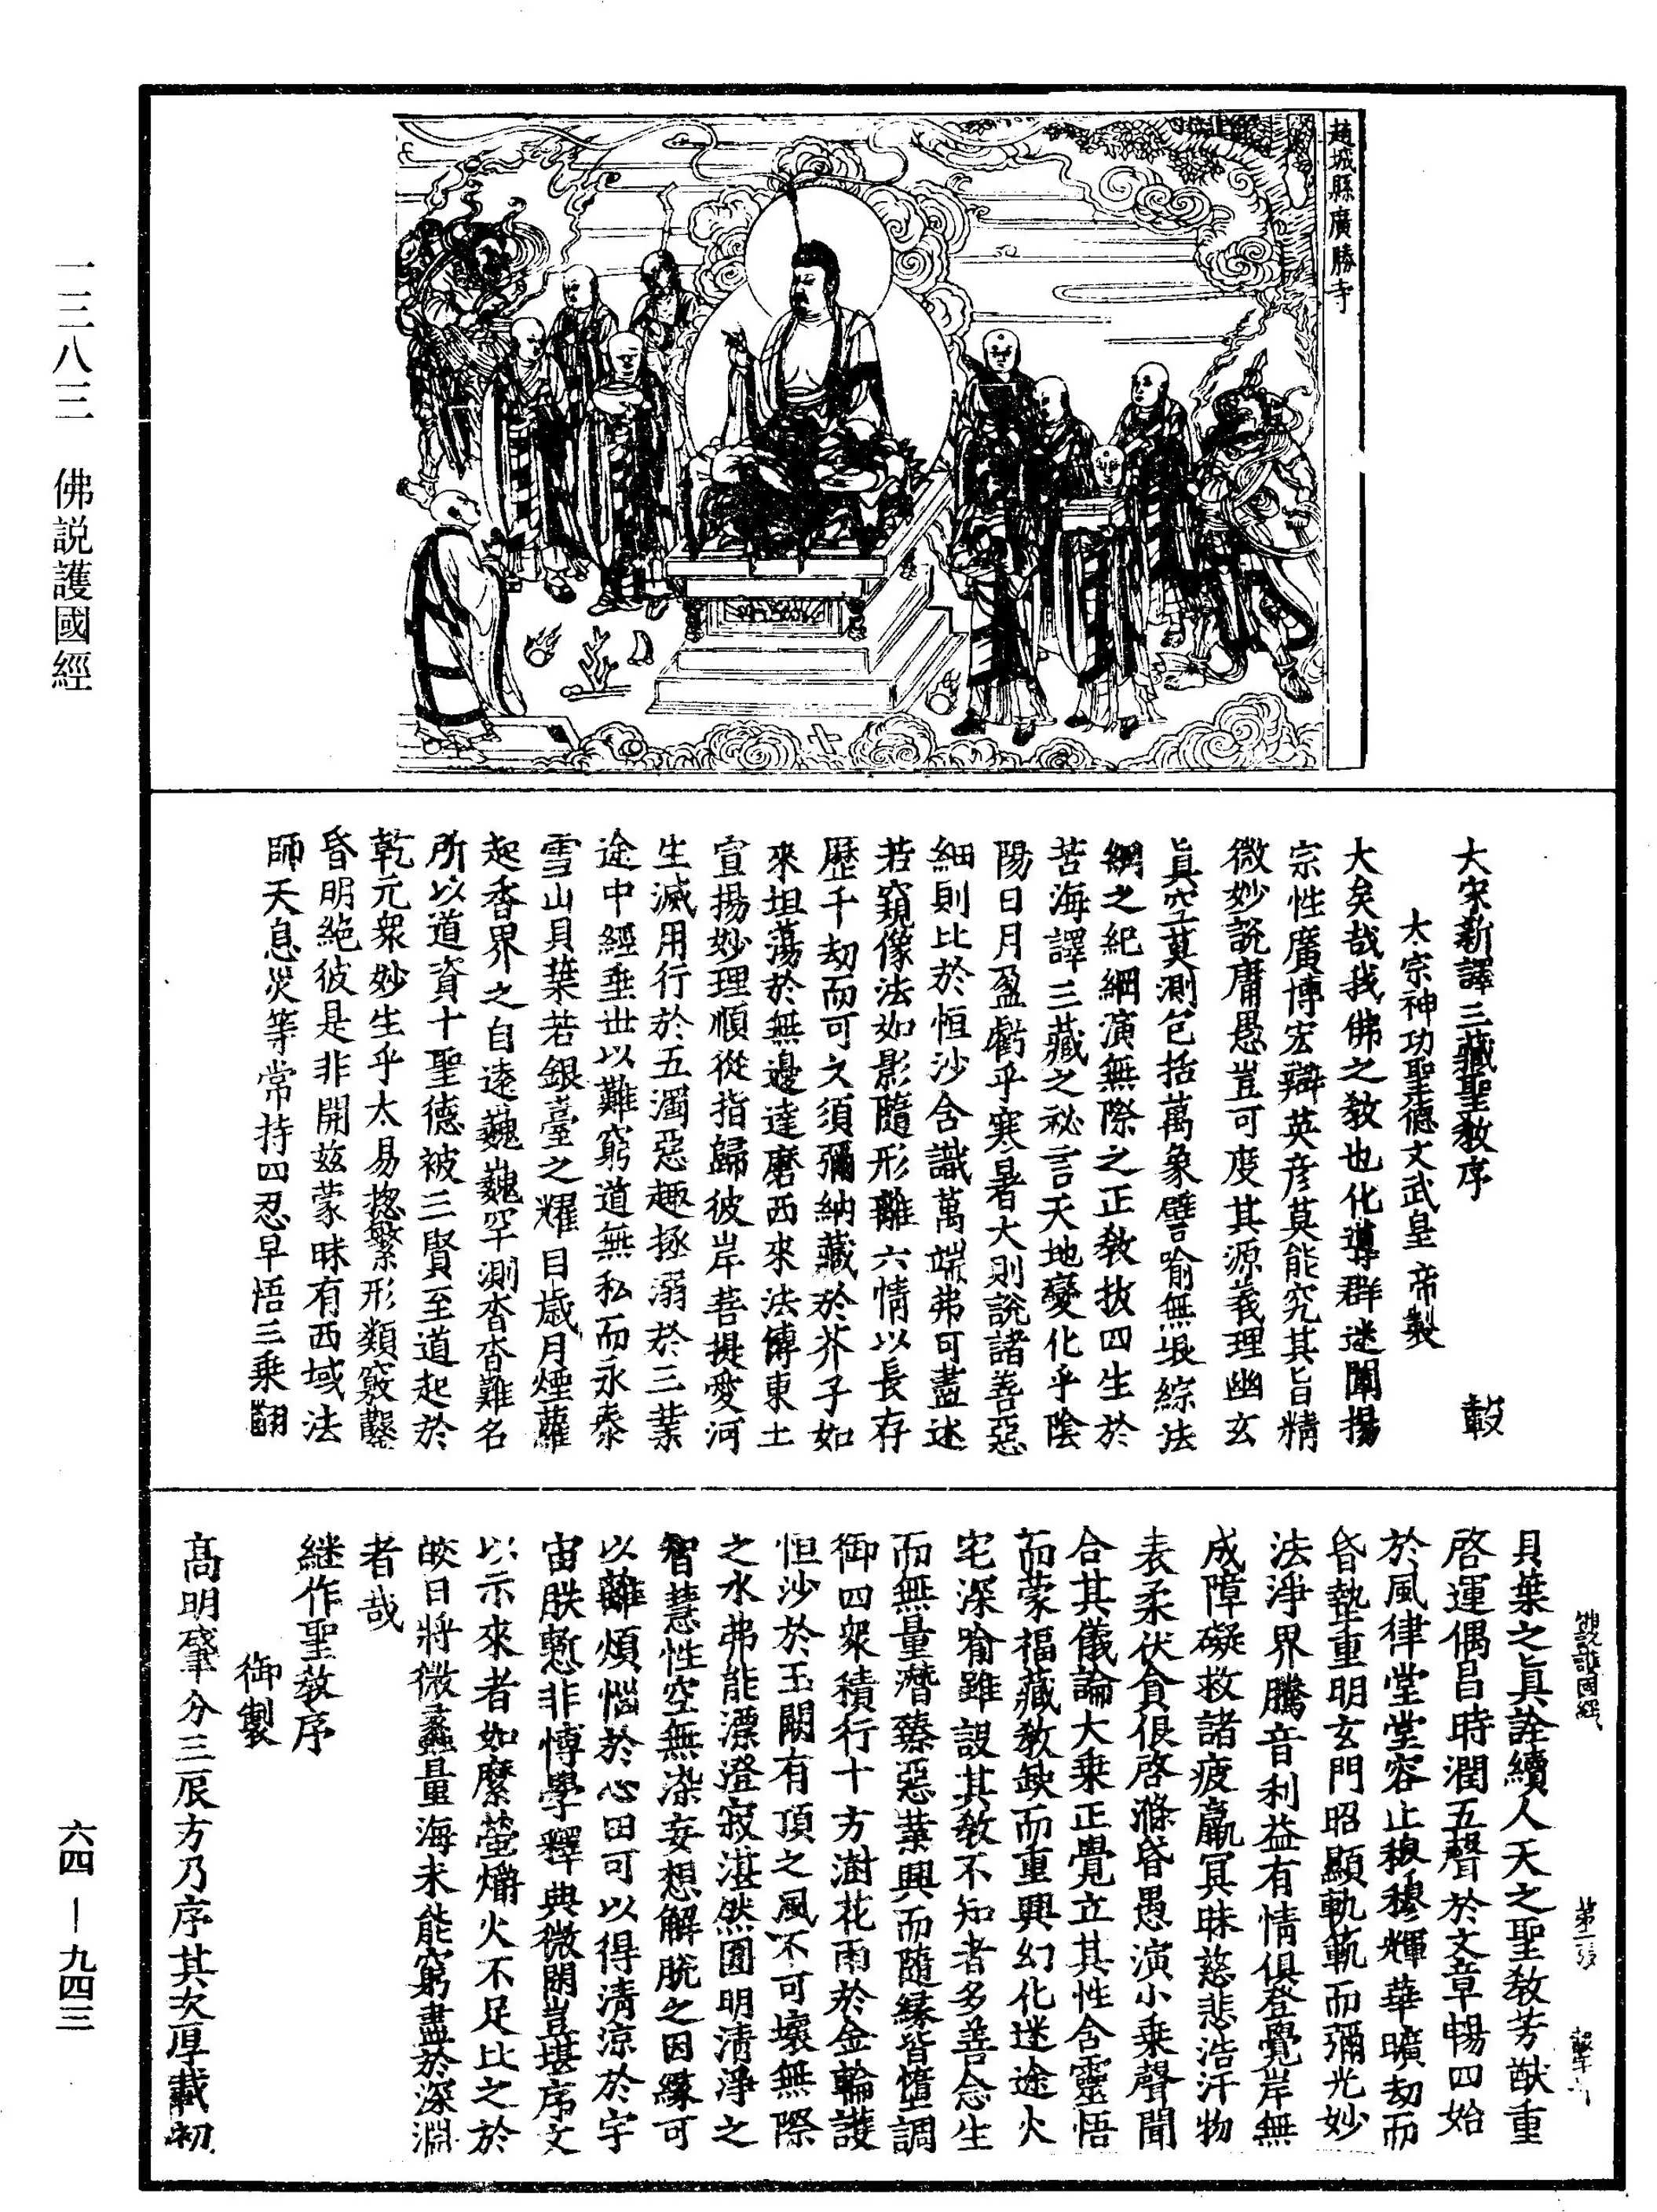 趙城縣廣勝寺
一三八三　佛説護國經
大宋新譯三藏聖教序　　轂
太宗神功聖德文武皇帝製
大矣哉我佛之教也化導群迷闡揚
宗性廣博宏辯英彦莫能究其旨精
微妙說庸愚豈可度其源義理幽玄
真空莫測包括萬象譬喻無垠綜法
網之紀綱演無際之正教拔四生於
苦海譯三藏之祕言天地變化乎陰
陽日月盈虧乎寒暑大則說諸善惡
細則比於恒沙含識萬端弗可盡述
若窺像法如影隨形離六情以長存
歷千劫而可久須彌納藏於芥子如
來坦蕩於無邊達磨西來法傳東土
宣揚妙理順從指歸彼岸菩提愛河
生滅用行於五濁惡趣拯溺於三業
途中經垂世以難窮道無私而永泰
雪山貝葉若銀臺之耀目歲月煙蘿
起香界之自遠巍巍罕測杳杳難名
所以道資十聖德被三賢至道起於
乾元衆妙生乎太易揔繫形類竅鑿
昏明絶彼是非開兹蒙昧有西域法
師天息災等常持四忍早悟三乘翻
佛説護國經　第一張
貝葉之真詮續人天之聖教芳猷重
啓運偶昌時潤五聲於文章暢四始
於風律堂堂容止穆穆輝華曠劫而
昏墊重明玄門昭顯軌範而彌光妙
法淨界騰音利益有情俱登覺岸無
成障礙救諸疲羸冥昧慈悲浩汗物
表柔伏貪很啓滌昏愚演小乘聲聞
合其儀論大乘正覺立其性含靈悟
而蒙福藏教缺而重興幻化迷途火
宅深喻雖設其教不知者多善念生
而無量潛臻惡業興而隨緣皆墮調
御四衆積行十方澍花雨於金輪護
恒沙於玉闕有頂之風不可壞無際
之水弗能漂澄寂湛然圓明清淨之
智慧性空無染妄想解脫之因緣可
以離煩惱於心田可以得清涼於宇
宙朕慙非博學釋典微閑豈堪序文
以示來者如縻螢爝火不足比之於
皎日將微蠡量海未能窮盡於深淵
者哉
継作聖教序
御製
高明肇分三辰方乃序其次厚載初
六四—九四三